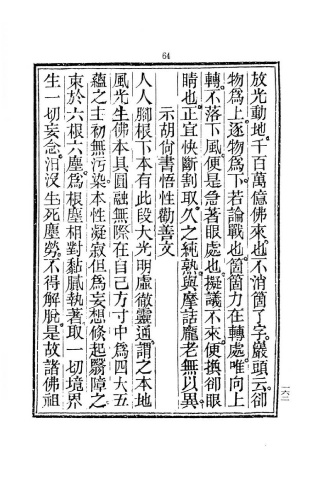 64
放光動地。千百萬億佛來也不消箇了字。巖頭云。卻
物爲上。逐物爲下。若論戰也。箇箇力在轉處。唯向上
轉。不落下風。便是急著眼處也。擬議不來。便換卻眼
睛也。正宜快斷割取。久之純熟。與摩詰龐老無以異。
示胡尙書悟性勸善文
人人腳根下本有此段大光明。虛徹靈通。謂之本地
風光。生佛本具。圓融無際。在自己方寸中。爲四大五
蘊之主。初無污染。本性凝寂。但爲妄想倐起翳障之。
束於六根六塵。爲根塵相對黏膩執著。取一切境界。
生一切妄念。汨沒生死塵勞。不得解脫。是故諸佛祖
一六二